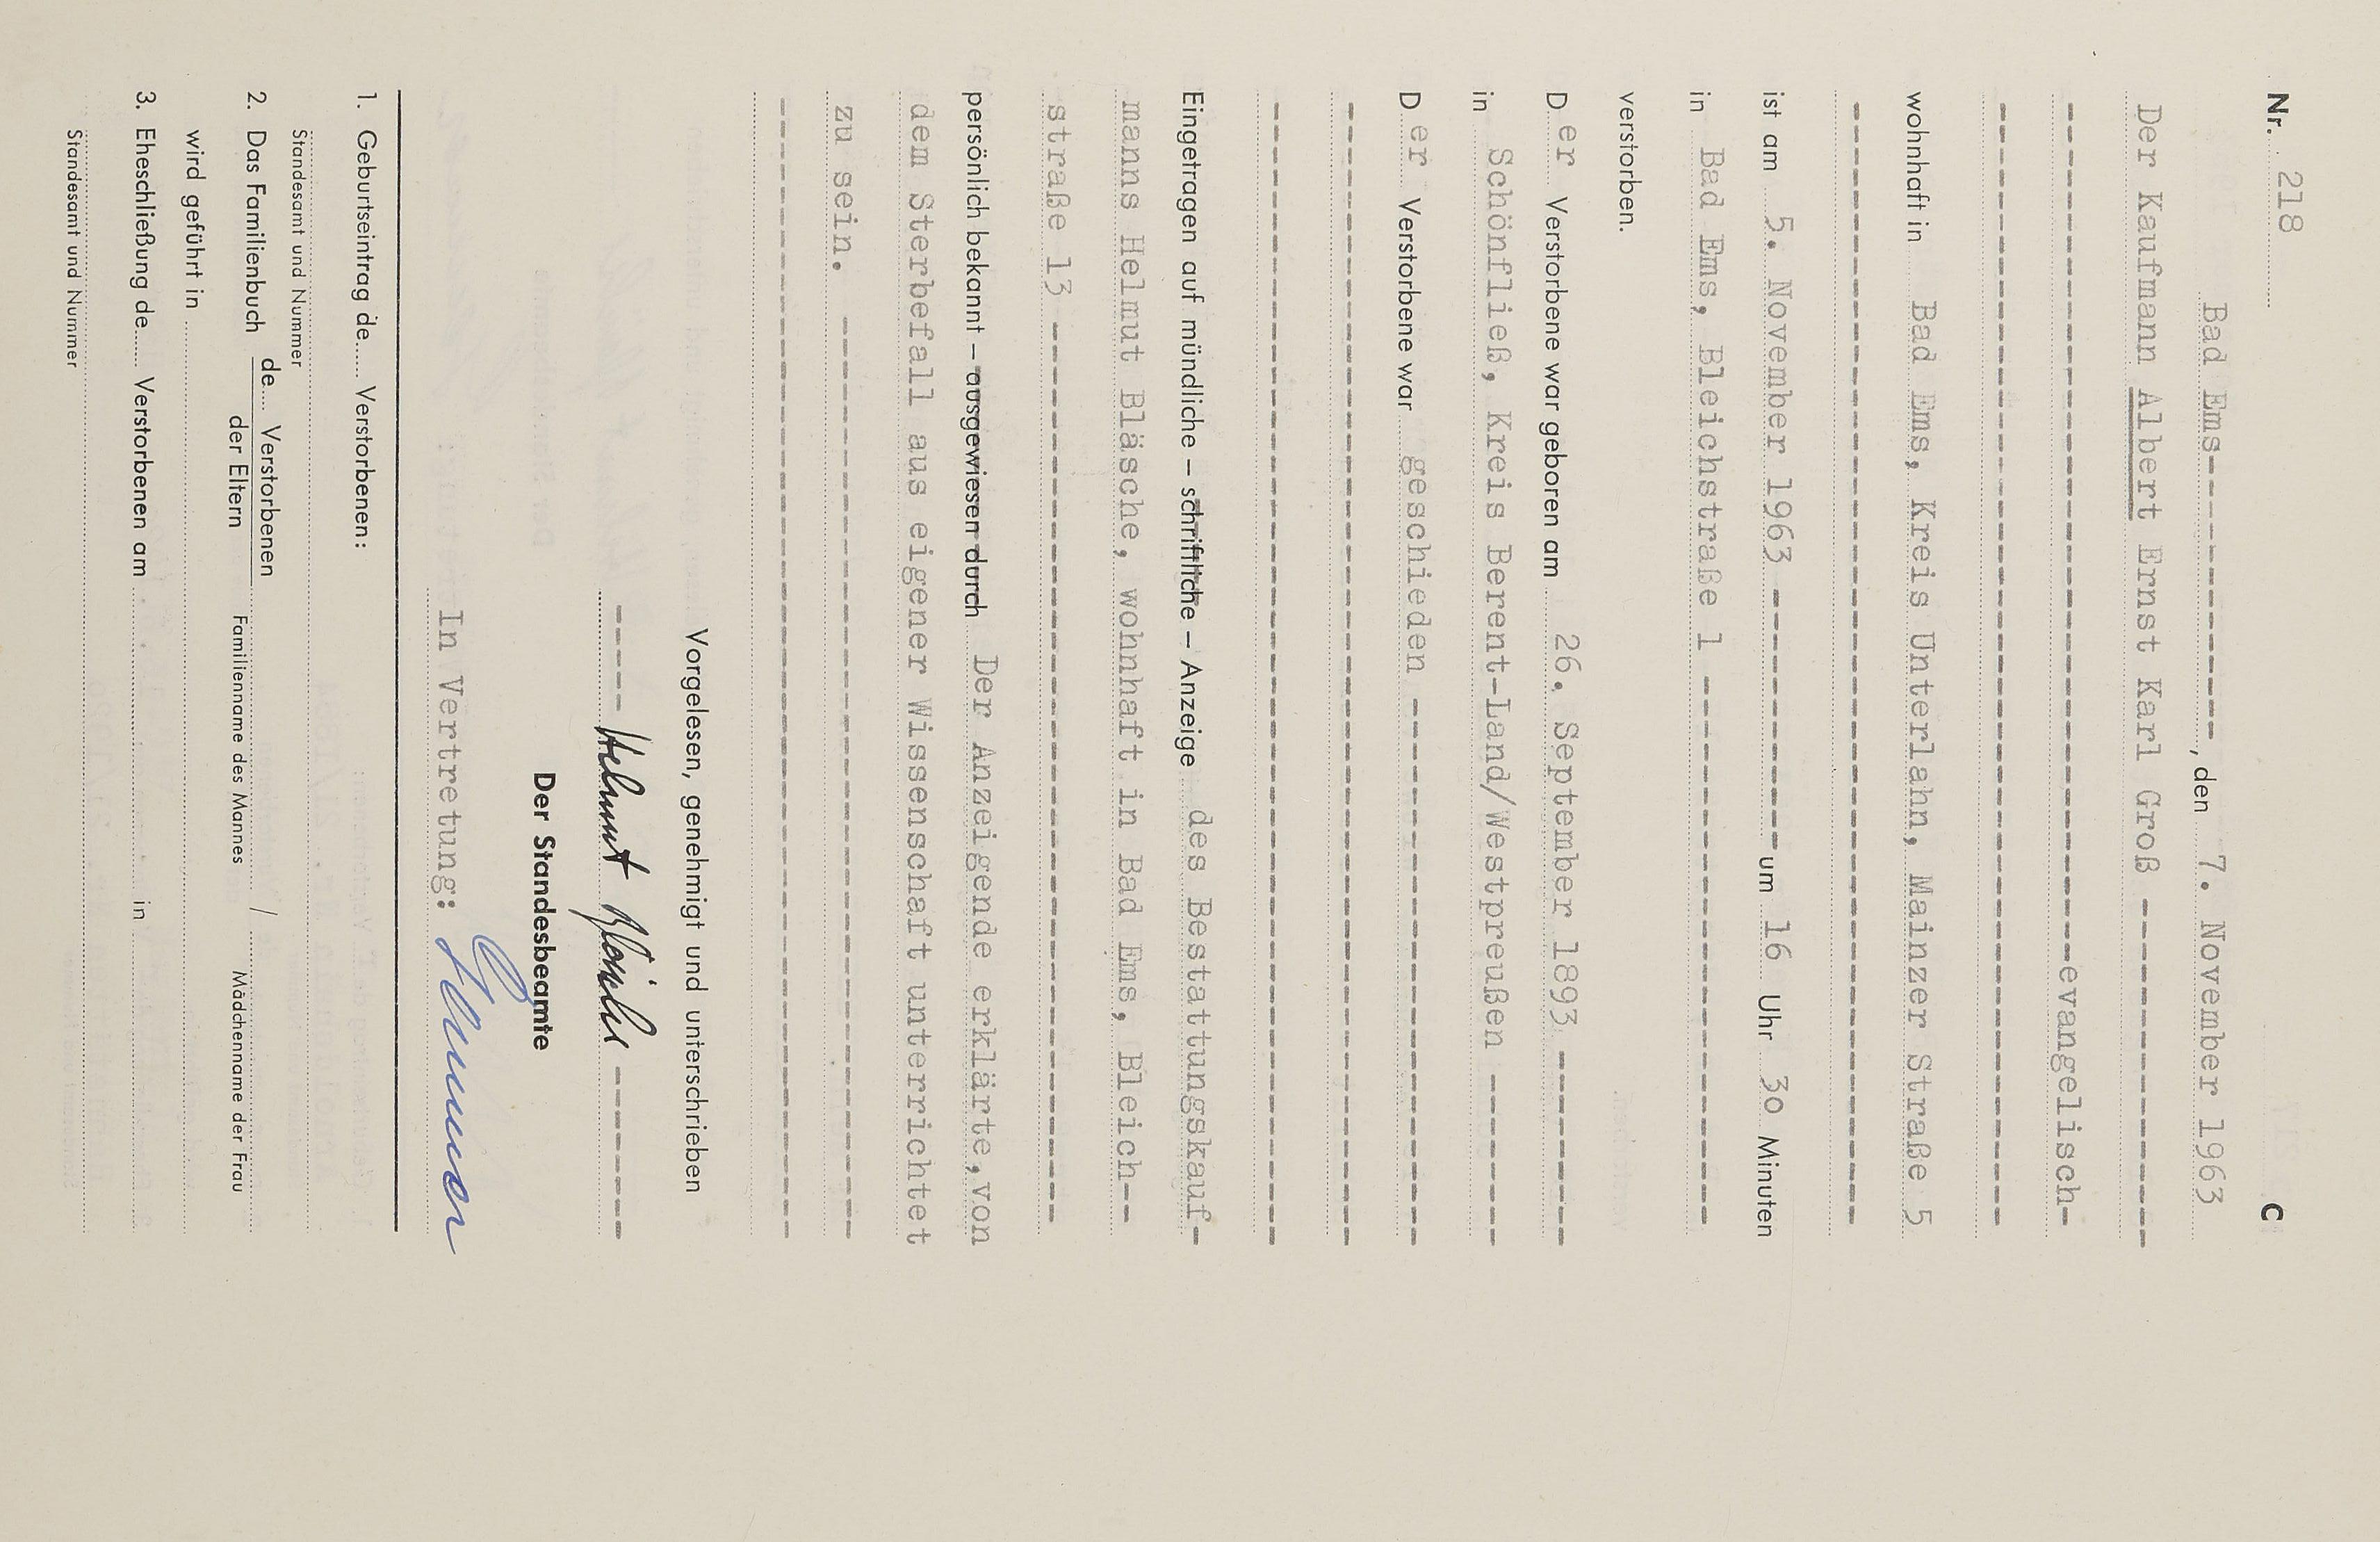 Nr. 218 C
Bad Ems------------, den 7. November 1963
Der Kaufmann Albert Ernst Karl Groß ------------
------------------------------evangelisch-
------------------------------------------
wohnhaft in Bad Ems, Kreis Unterlahn, Mainzer Straße 5
------------------------------------------
ist am 5. November 1963 ---------- um 16 Uhr 30 Minuten
in Bad Ems, Bleichstraße 1 --------------------
verstorben.
Der Verstorbene war geboren am 26. September 1893 -------
in Schönfließ, Kreis Berent-Land/Westpreußen ------
Der Verstorbene war geschieden --------------------
------------------------------------------
------------------------------------------
Eingetragen auf mündliche – schriftliche – Anzeige des Bestattungskauf-
manns Helmut Bläsche, wohnhaft in Bad Ems, Bleich--
straße 13 --------------------------------
persönlich bekannt – ausgewiesen durch Der Anzeigende erklärte, von
dem Sterbefall aus eigener Wissenschaft unterrichtet
zu sein. ---------------------------------
------------------------------------------
Vorgelesen, genehmigt und unterschrieben
----- Helmut Bläsche -------
Der Standesbeamte
In Vertretung:
1. Geburtseintrag de..... Verstorbenen:
Standesamt und Nummer
2. Das Familienbuch de.... Verstorbenen / der Eltern
Familienname des Mannes / Mädchenname der Frau
wird geführt in
3. Eheschließung de..... Verstorbenen am in
Standesamt und Nummer